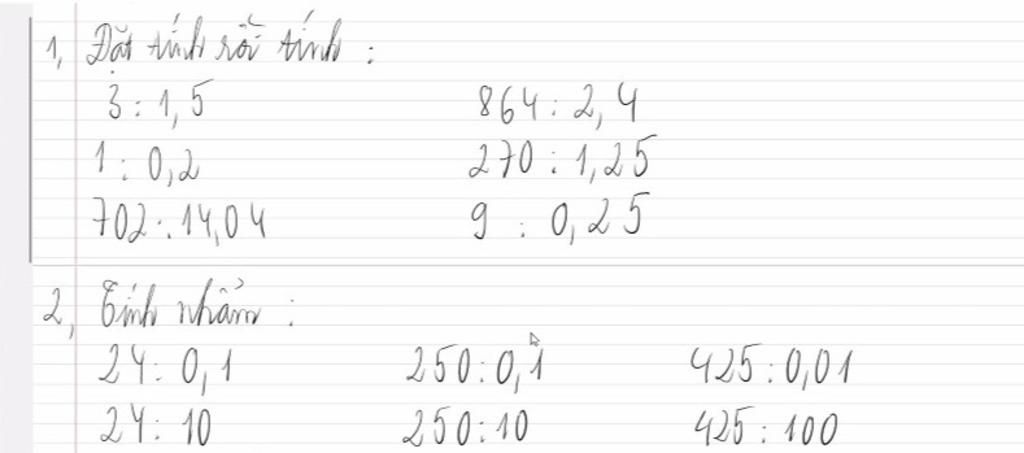 1, Đặt tính rồi tính :
3 : 1,5 864 : 2,4
1 : 0,2 270 : 1,25
702 : 14,04 9 : 0,25
2, Tính nhẩm :
24 : 0,1 250 : 0,1 425 : 0,01
24 : 10 250 : 10 425 : 100